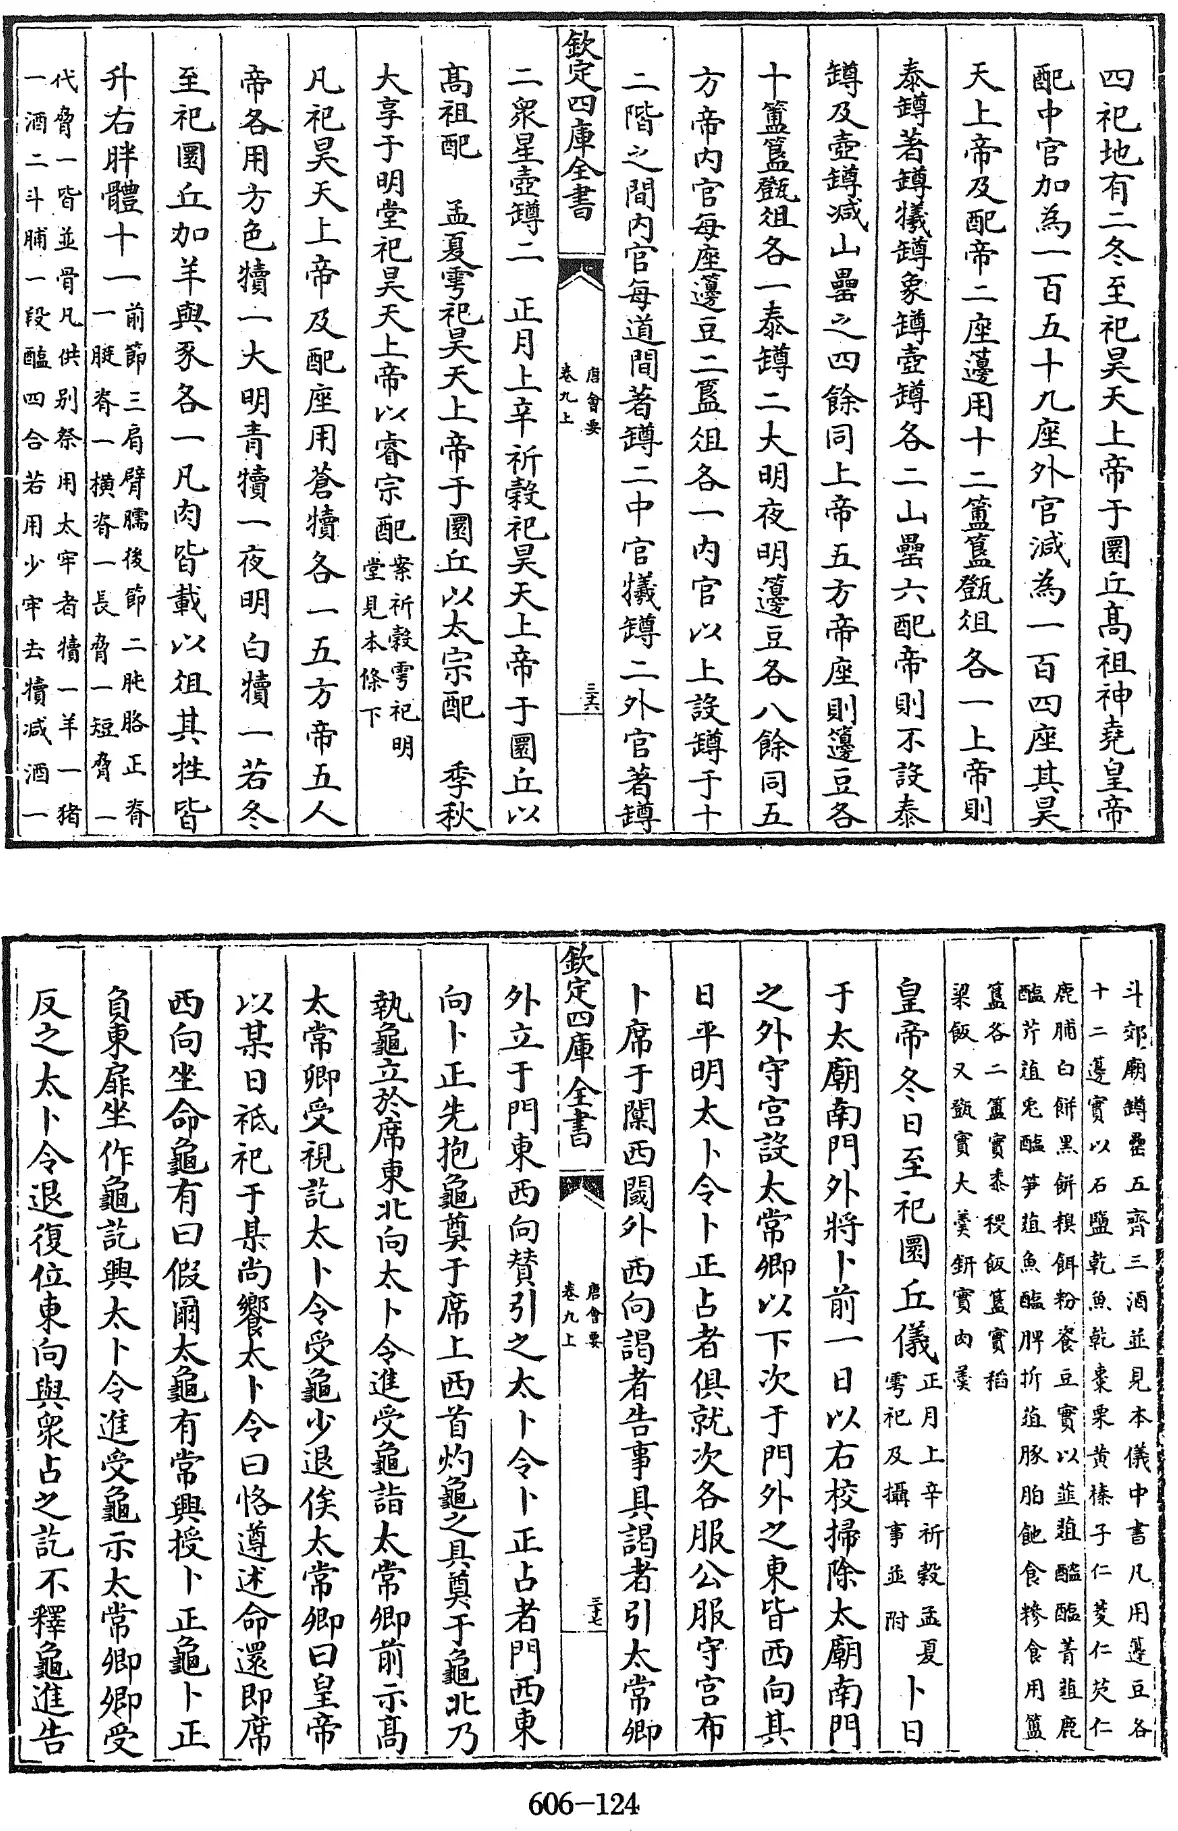 四祀地有二冬至祀昊天上帝于圜丘髙祖神堯皇帝
配中官加為一百五十九座外官減為一百四座其昊
天上帝及配帝二座籩用十二簠簋㽅俎各一上帝則
泰罇著罇犧罇象罇壺罇各二山罍六配帝則不設泰
罇及壺罇减山罍之四餘同上帝五方帝座則籩豆各
十簠簋㽅俎各一泰罇二大明夜明籩豆各八餘同五
方帝内官每座籩豆二簋俎各一内官以上設罇于十
二階之間内官每道間著罇二中官犧罇二外官著罇
欽定四庫全書 唐會要 卷九上 三六
二衆星壺罇二 正月上辛祈穀祀昊天上帝于圜丘以
髙祖配 孟夏雩祀昊天上帝于圜丘以太宗配 季秋
大享于明堂祀昊天上帝以睿宗配 案祈穀雩祀明 堂見本條下
凡祀昊天上帝及配座用蒼犢各一五方帝五人
帝各用方色犢一大明青犢一夜明白犢一若冬
至祀圜丘加羊與豕各一凡肉皆載以俎其牲皆
升右胖體十一 前節三肩臂臑後節二肫胳正脊 一脡脊一横脊一長脅一短脅一
代脅一皆並骨凡供别祭用太牢者犢一羊一猪
一酒二斗脯一段醢四合若用少牢去犢減酒一
斗郊廟罇罍五齊三酒並見本儀中書凡用籩豆各
十二籩實以石鹽乾魚乾棗栗黄榛子仁菱仁芡仁
鹿脯白餅黑餅糗餌粉餈豆實以韮葅醓醢菁葅鹿
醢芹葅兎醢笋葅魚醢脾析葅豚胉䬳食糝食用簠
簋各二簋實黍稷飯簠實稻
粱飯又㽅實大羹鈃實肉羹
皇帝冬日至祀圜丘儀 正月上辛祈穀孟夏 雩祀及攝事並附 卜日
于太廟南門外將卜前一日以右校掃除太廟南門
之外守宫設太常卿以下次于門外之東皆西向其
日平明太卜令卜正占者俱就次各服公服守宫布
卜席于闑西閾外西向謁者告事具謁者引太常卿
欽定四庫全書 唐會要 卷九上 三七
外立于門東西向賛引之太卜令卜正占者門西東
向卜正先抱龜奠于席上西首灼龜之具奠于龜北乃
執龜立於席東北向太卜令進受龜詣太常卿前示髙
太常卿受視訖太卜令受龜少退俟太常卿曰皇帝
以某日祗祀于某尚饗太卜令曰恪遵述命還即席
西向坐命龜有曰假爾太龜有常興授卜正龜卜正
負東扉坐作龜訖興太卜令進受龜示太常卿卿受
反之太卜令退復位東向與衆占之訖不釋龜進告
606-124